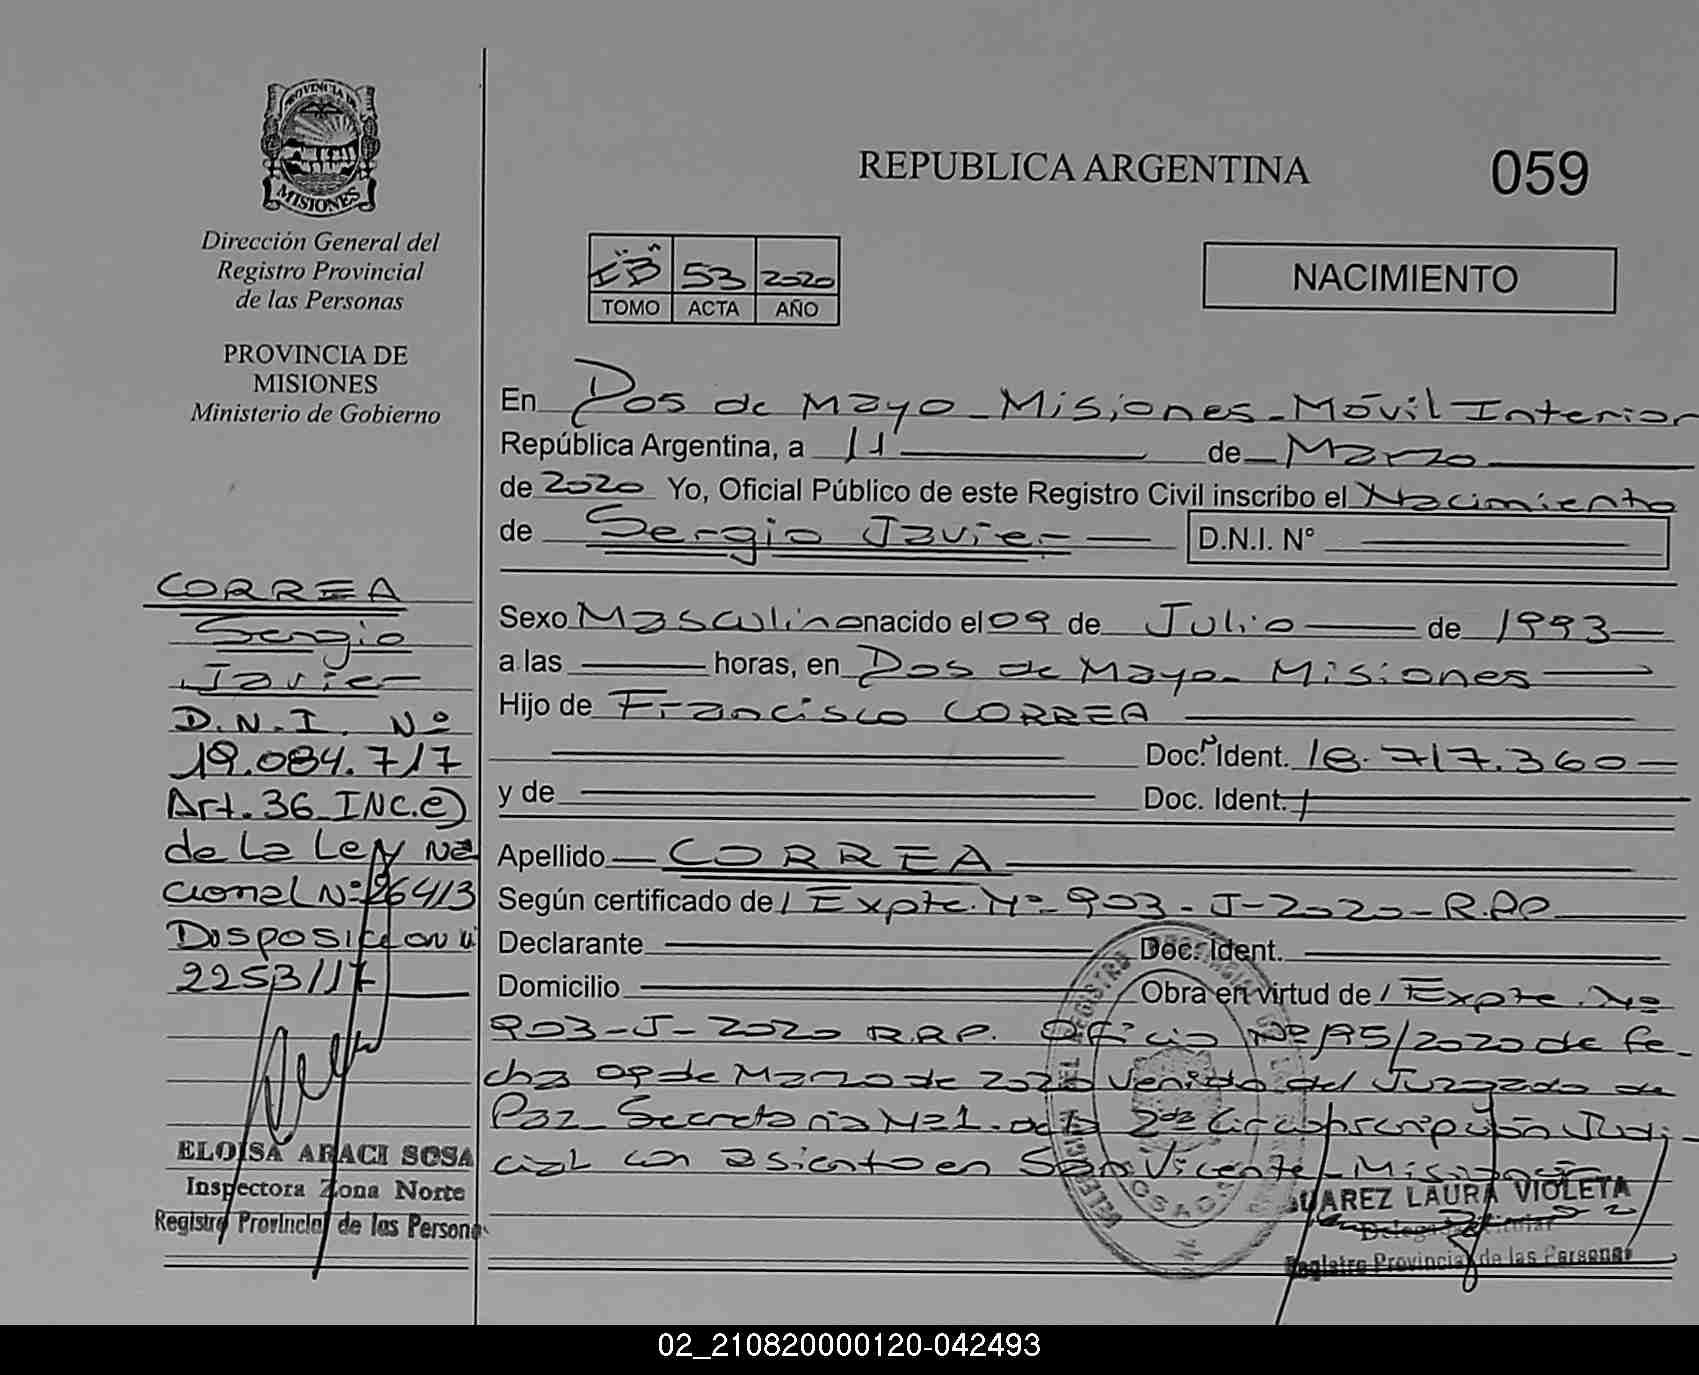 PROVINCIA DE
MISIONES
Dirección General del
Registro Provincial
de las Personas
PROVINCIA DE
MISIONES
Ministerio de Gobierno
CORREA
Sergio
Javier
D.N.I. Nº
19.084.717
Art. 36 INC. e)
de La Ley Na
cional Nº 26413
Disposición
2253/17
ELOISA ARACI SOSA
Inspectora Zona Norte
Registro Provincial de las Persona
REPUBLICA ARGENTINA
059
53 2020
TOMO ACTA AÑO
NACIMIENTO
En Dos de Mayo - Misiones - Móvil Interior
República Argentina, a 11 de Marzo
de 2020 Yo, Oficial Público de este Registro Civil inscribo el Nacimiento
de Sergio Javier D.N.I. N°
Sexo Masculino nacido el 09 de Julio de 1993
a las horas, en Dos de Mayo - Misiones
Hijo de Francisco CORREA
Doc. Ident. 18.717.360
y de Doc. Ident.
Apellido CORREA
Según certificado de Expte. Nº 903-J-2020-R.P.P
Declarante Doc. Ident.
Domicilio Obra en virtud de Expte. Nº
903-J-2020 R.P.P. Oficio Nº 195/2020 de fe-
cha 09 de Marzo de 2020 venido del Juzgado de
Paz Secretaria Nº 1 de la 2da Circunscripción Judi-
cial con asiento en San Vicente - Misiones
SUAREZ LAURA VIOLETA
Delegada Titular
Registro Provincial de las Personas
02_210820000120-042493